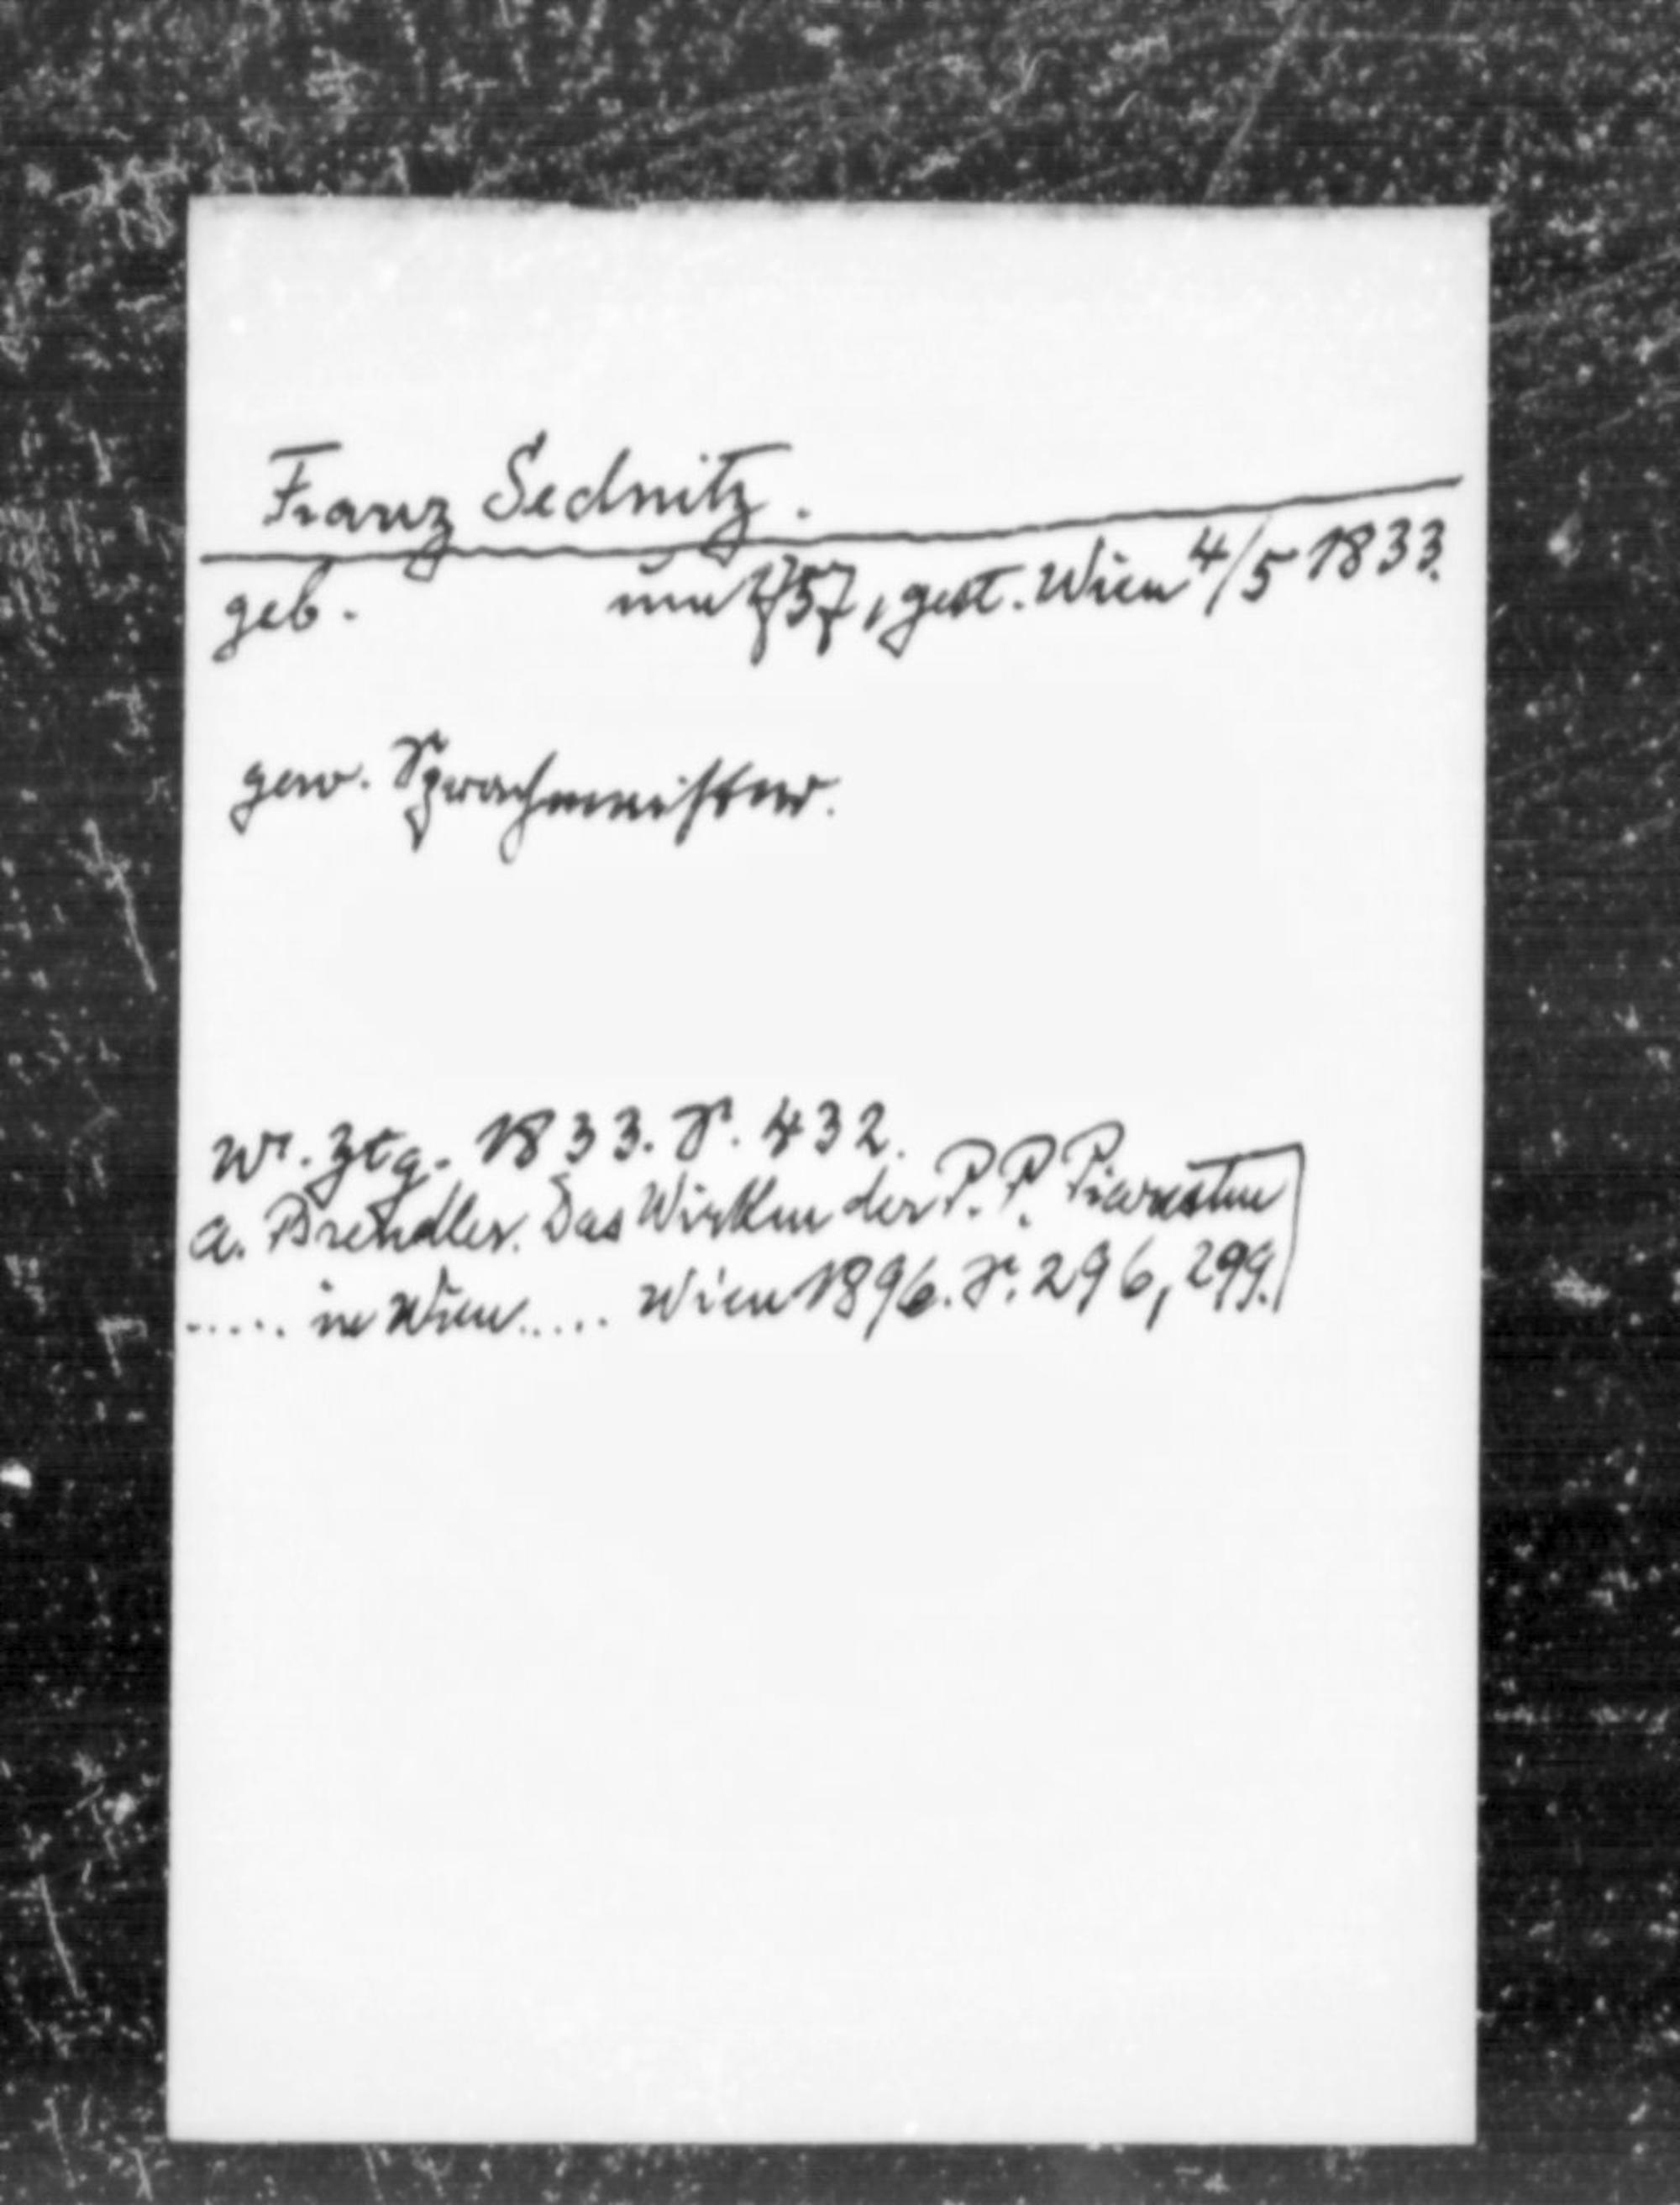 Franz Sednitz.
geb. um 1757, gest. Wien 4/5 1833.
gew. Sprachmeister.
Wr. Ztg. 1833. S. 432.
A. Brendler. Das Wirken der P. P. Piaristen
..... in Wien..... Wien 1896. S. 296, 299.